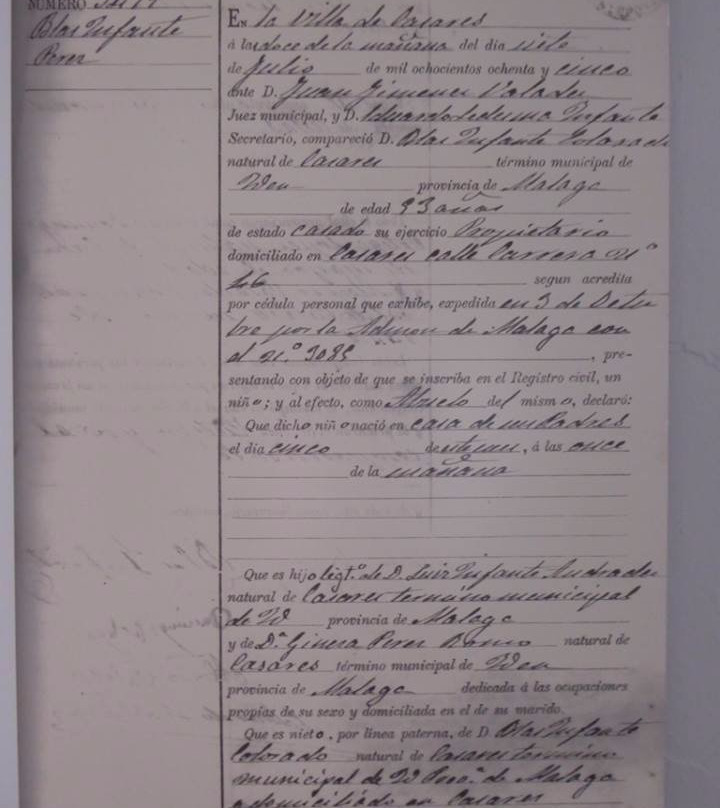 NUMERO
Blas Infante
Perez
EN la villa de Casares
á las doce de la mañana del dia siete
de Julio de mil ochocientos ochenta y cinco
ante D. Juan Jimenez
Juez municipal, y D. Eduardo Ledesma Infante
Secretario, compareció D. Blas Infante Colorado
natural de Casares término municipal de
Idem provincia de Malaga
de edad 93 años
de estado casado su ejercicio Propietario
domiciliado en Casares calle Carrera nº
46 segun acredita
por cédula personal que exhibe, expedida en 3 de Octu
bre por la Admon de Malaga con
el n.º 3085, pre-
sentando con objeto de que se inscriba en el Registro civil, un
niño; y al efecto, como Abuelo del mismo, declaró:
Que dicho niño nació en casa de sus Padres
el dia cinco de este mes, á las once
de la mañana
Que es hijo legt.º de D. Luis Infante Andrades
natural de Casares termino municipal
de Id provincia de Malaga
y de D.ª Ginesa Perez Romo natural de
Casares término municipal de Idem
provincia de Malaga dedicada á las ocupaciones
propias de su sexo y domiciliada en el de su marido.
Que es nieto, por linea paterna, de D. Blas Infante
Colorado natural de Casares termino
municipal de Id Prov.ª de Malaga
domiciliado en Casares